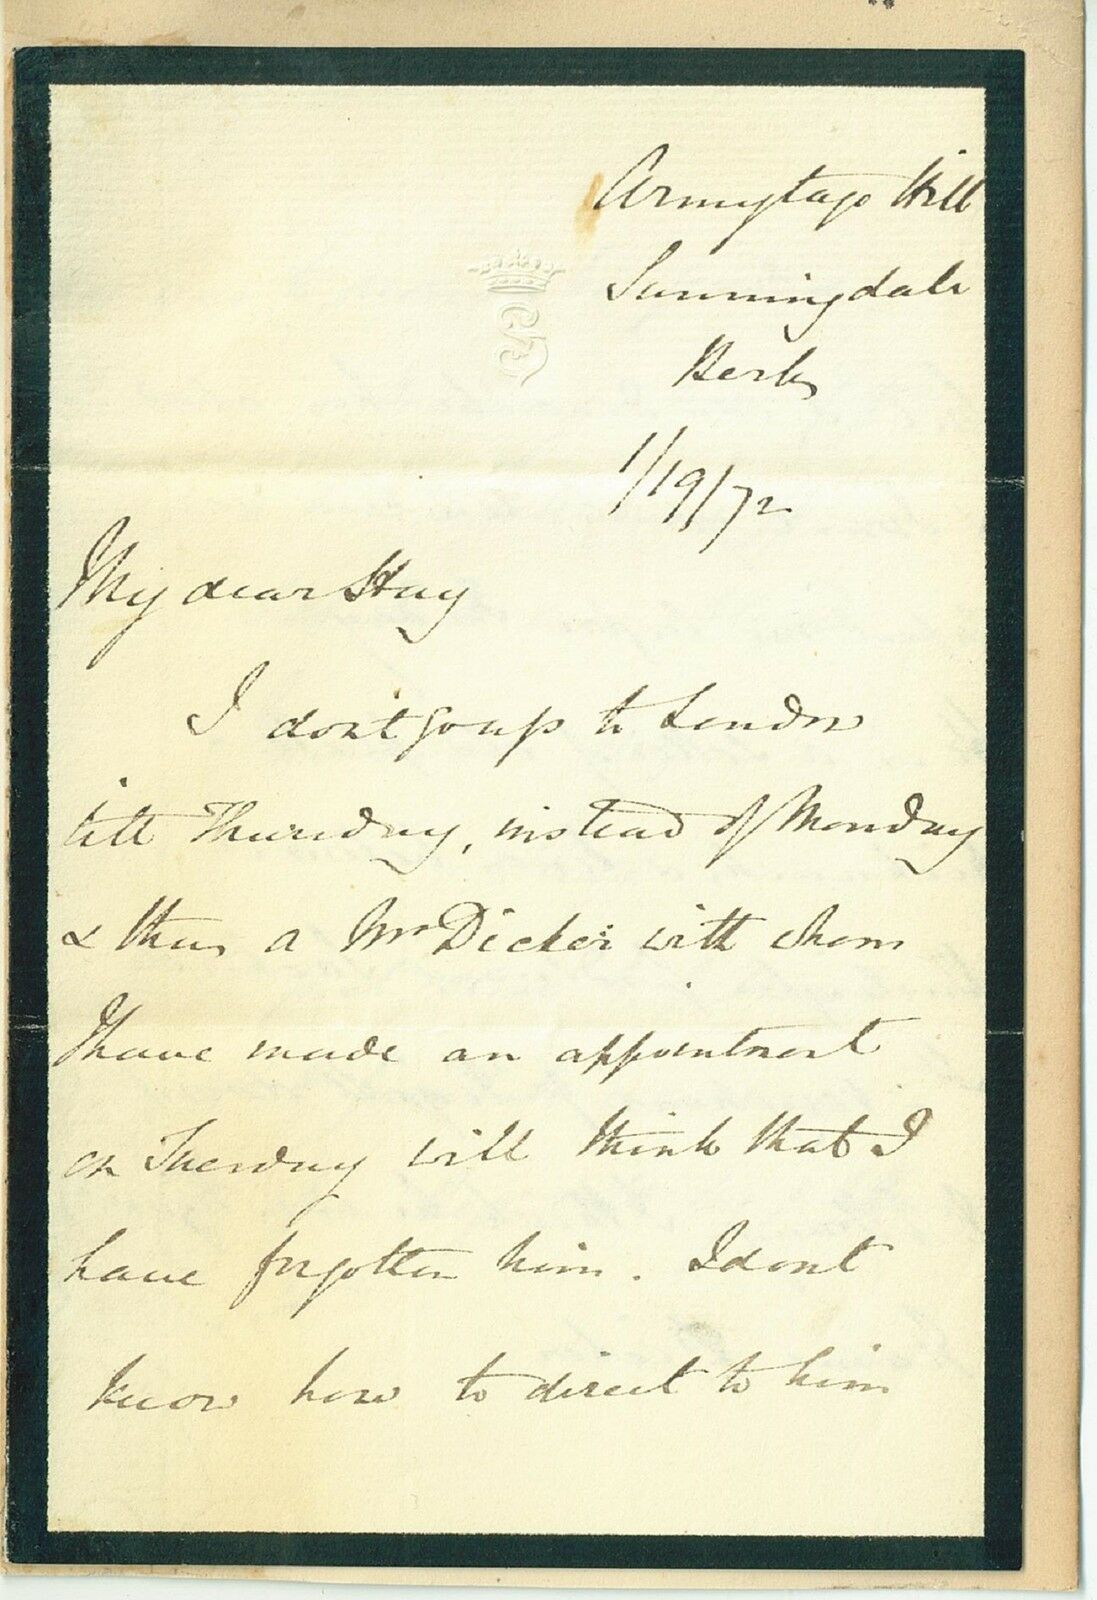 Armytage Hill
Sunningdale
Berks
1/19/72
My dear Hay
I dont go up to London
till Thursday, instead of Monday
& thus a Mr Dicker with whom
I have made an appointment
on Tuesday will think that I
have forgotten him. I dont
know how to direct to him